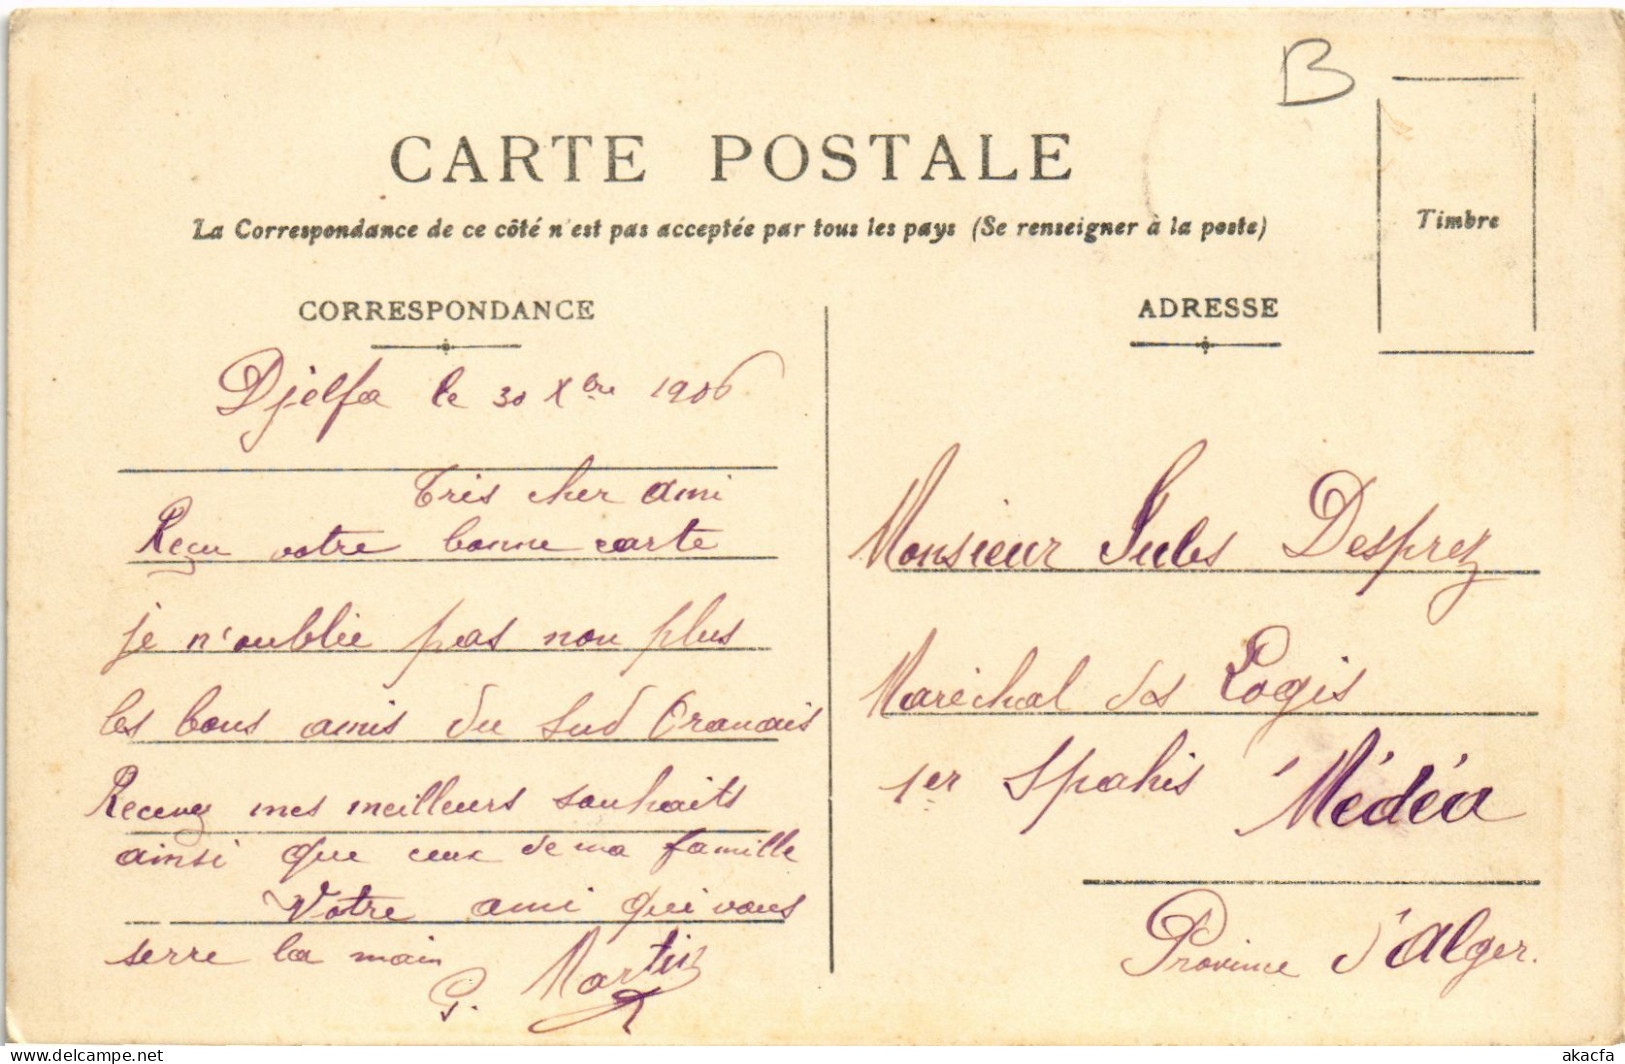 B
CARTE POSTALE
La Correspondance de ce côté n'est pas acceptée par tous les pays (Se renseigner à la poste)
Timbre
CORRESPONDANCE
Djelfa le 30 Xbre 1906
Très cher ami
Reçu votre bonne carte
je n'oublie pas non plus
les bons amis du Sud Oranais
Recevez mes meilleurs souhaits
ainsi que ceux de ma famille
Votre ami qui vous
serre la main
G. Martin
ADRESSE
Monsieur Jules Desprez
Maréchal des Logis
1er Spahis Médéa
Province d'Alger.
delcampe.net
akacfa